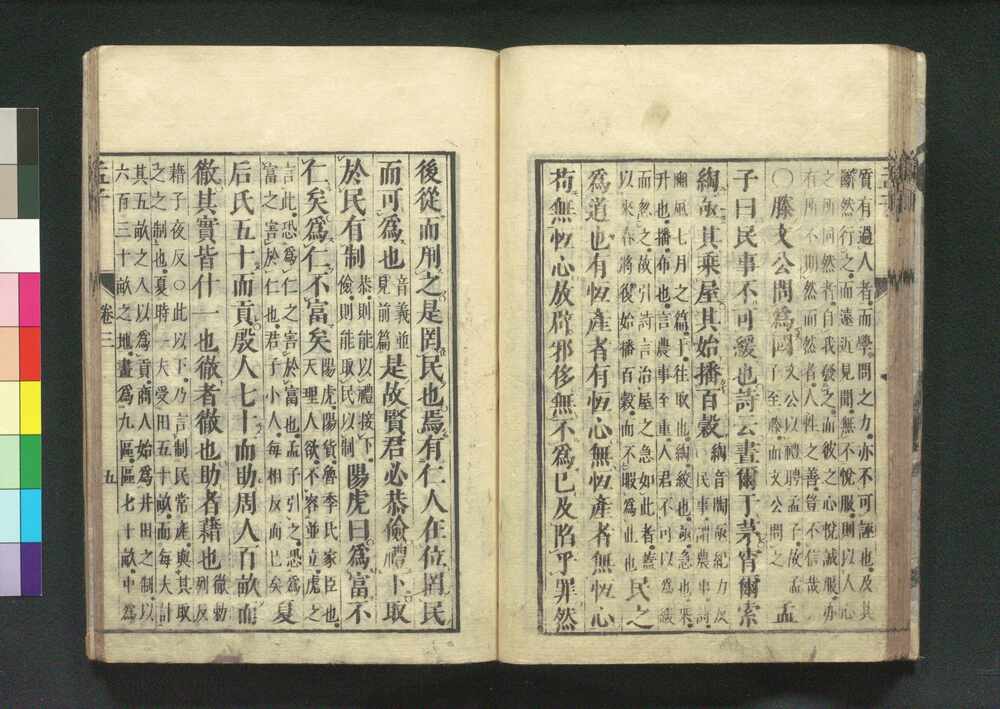 質有過人者而學問之力亦不可誣也及其
斷然行之而遠近見聞無不悅服則以人心
之所同然者自我發之而彼之心悅誠服亦
有所不期然而然者人性之善豈不信哉
○滕文公問爲國 文公以禮聘孟子故孟子至滕而文公問之 孟
子曰民事不可緩也詩云晝爾于茅宵爾索
綯亟其乘屋其始播百穀 綯音陶亟紀力反 民事謂農事詩
豳風七月之篇于往取也綯絞也亟急也乘
升也播布也言農事至重人君不可以爲緩
而忽之故引詩言治屋之急如此者蓋
以來春將復始播百穀而不暇爲此也 民之
爲道也有恆產者有恆心無恆產者無恆心
苟無恆心放辟邪侈無不爲已及陷乎罪然
後從而刑之是罔民也焉有仁人在位罔民
而可爲也 音義並見前篇 是故賢君必恭儉禮下取
於民有制 恭則能以禮接下儉則能取民以制 陽虎曰爲富不
仁矣爲仁不富矣 陽虎陽貨魯季氏家臣也天理人欲不容並立虎之
言此恐爲仁之害於富也孟子引之恐爲
富之害於仁也君子小人每相反而已矣 夏
后氏五十而貢殷人七十而助周人百畝而
徹其實皆什一也徹者徹也助者藉也 徹勑列反
藉子夜反○此以下乃言制民常產與其取
之之制也夏時一夫受田五十畝而每夫計
其五畝之入以爲貢商人始爲井田之制以
六百三十畝之地畫爲九區區七十畝中爲
孟子
卷三
五